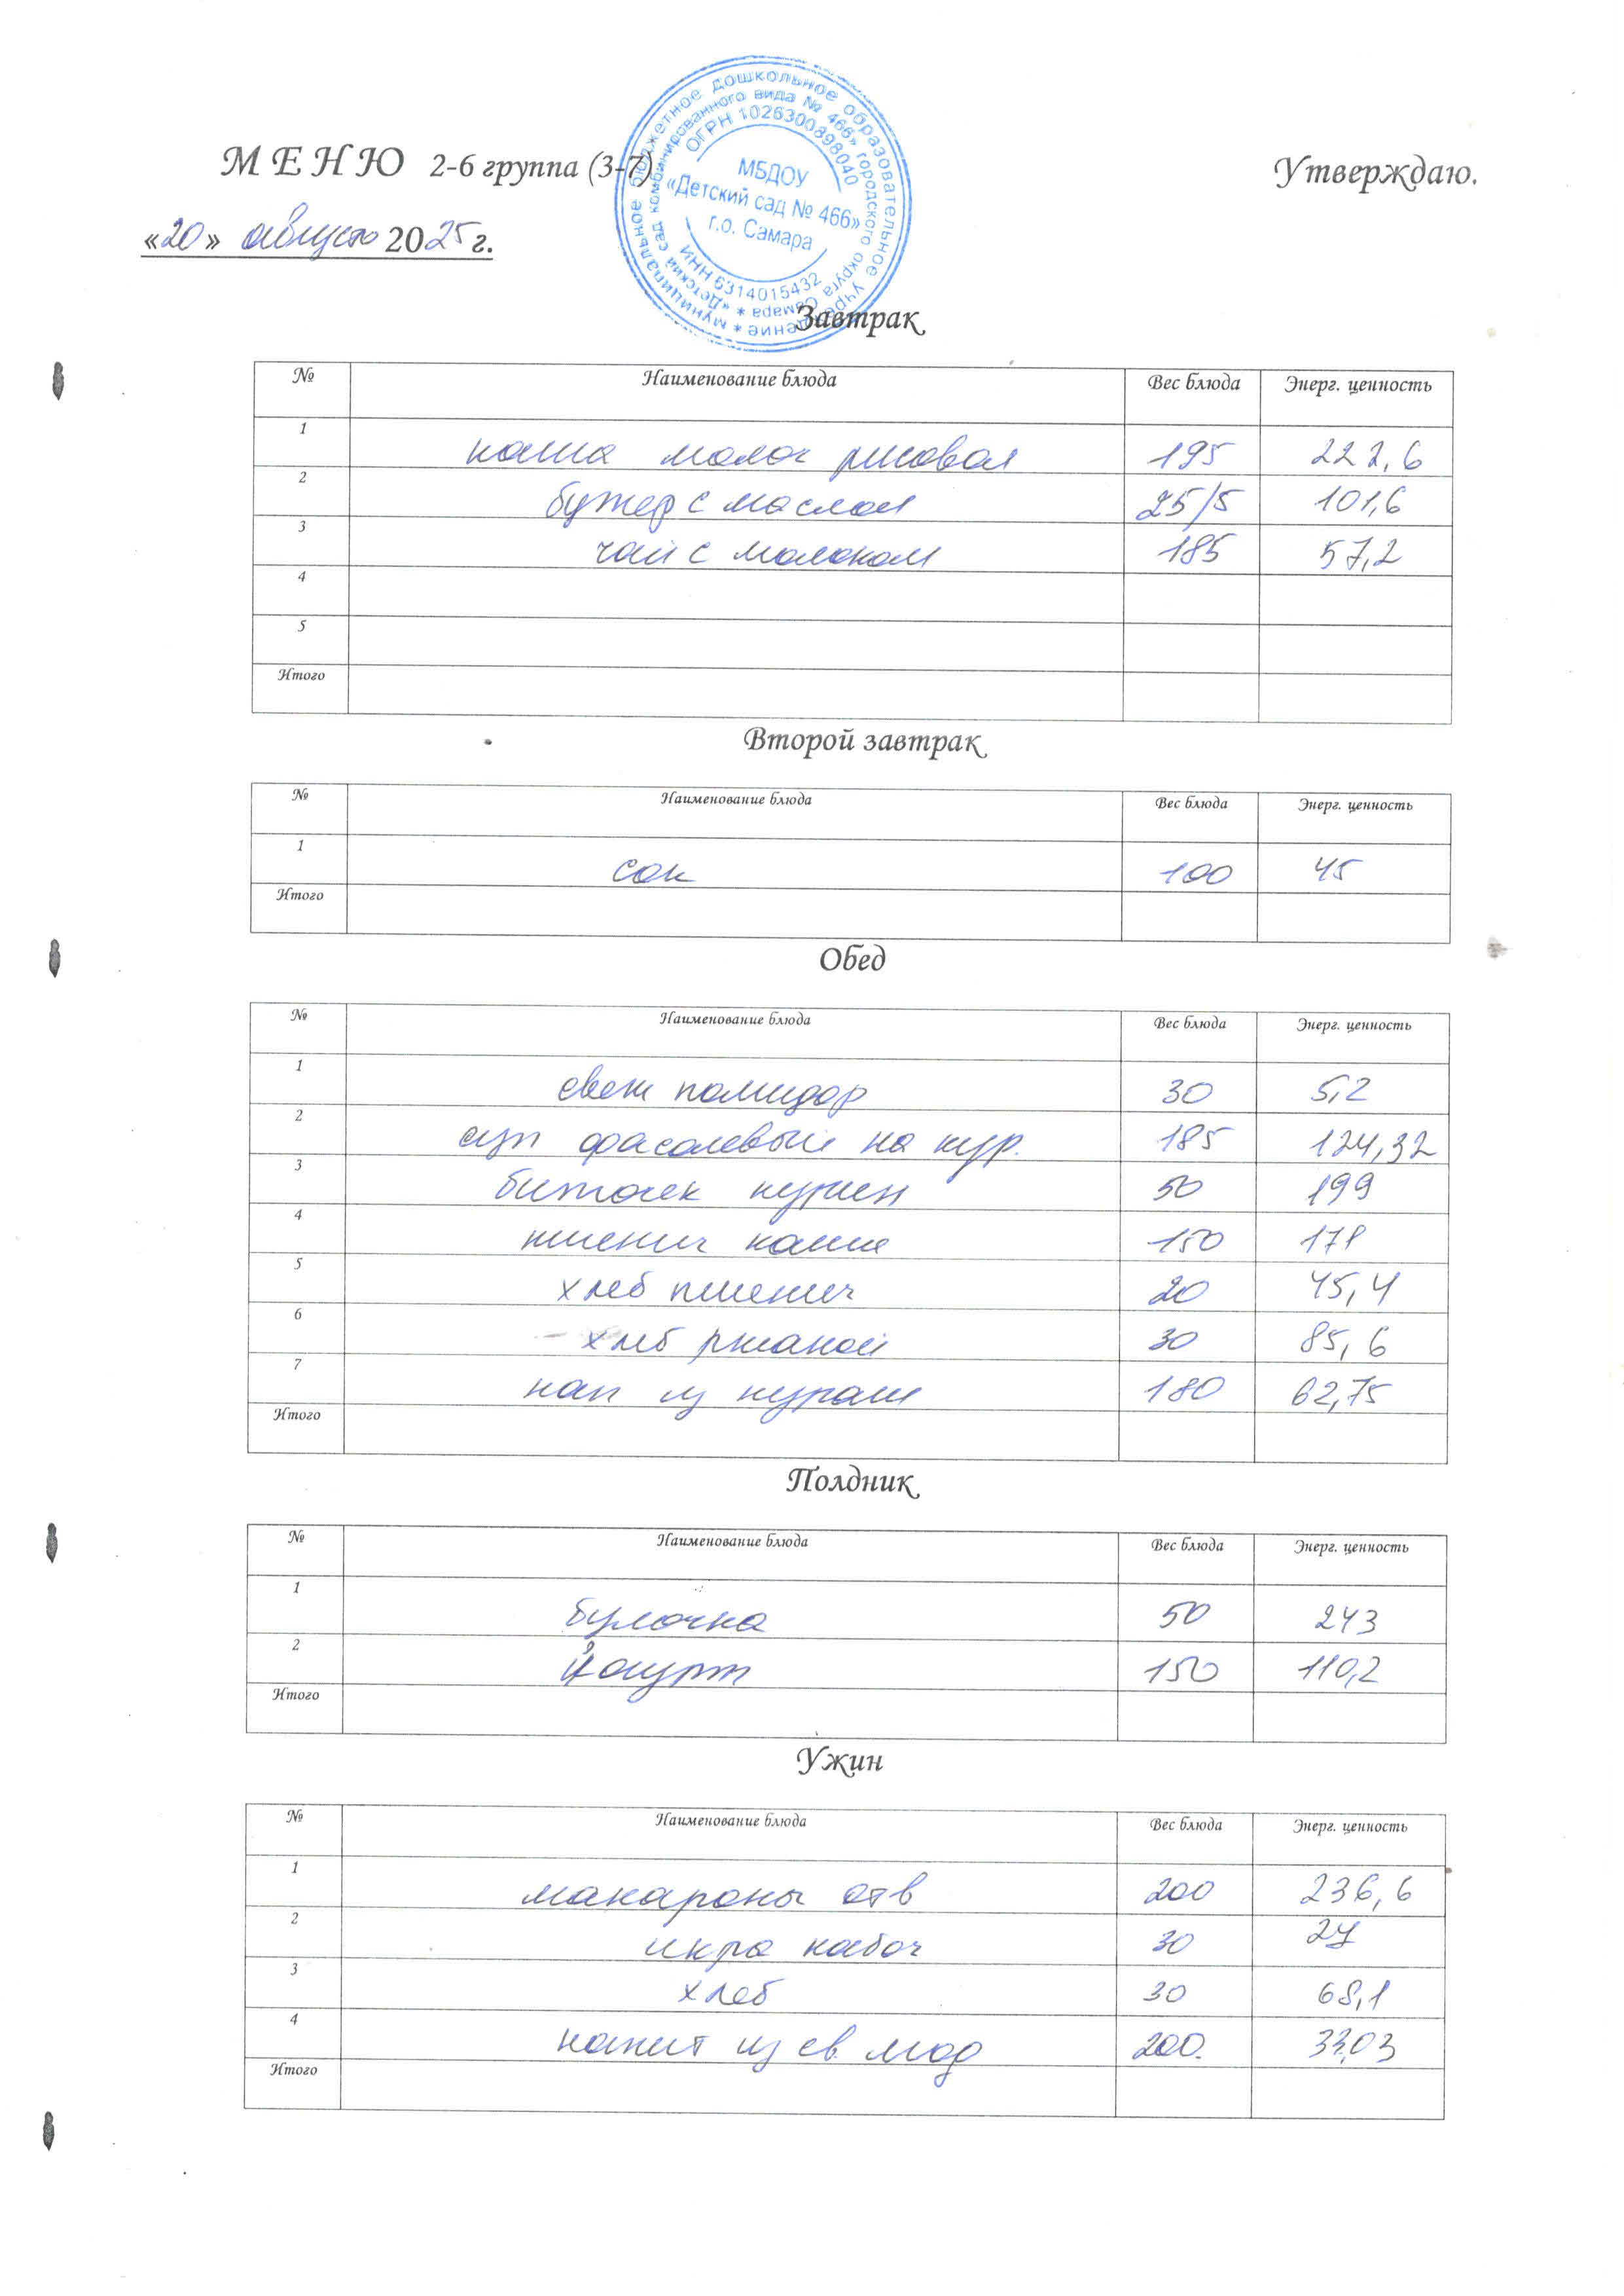 муниципальное бюджетное дошкольное образовательное учреждение
«Детский сад комбинированного вида № 466» городского округа Самара
ОГРН 1026300898040
МБДОУ
«Детский сад № 466»
г.о. Самара
ИНН 6314015432
М Е Н Ю 2-6 группа (3-7)
Утверждаю.
«20» августа 2025 г.
Завтрак
№ Наименование блюда Вес блюда Энерг. ценность
1 каша молоч рисовая 195 222,6
2 бутер с маслом 25/5 101,6
3 чай с молоком 185 57,2
4
5
Итого
Второй завтрак
№ Наименование блюда Вес блюда Энерг. ценность
1 сок 100 45
Итого
Обед
№ Наименование блюда Вес блюда Энерг. ценность
1 свеж помидор 30 5,2
2 суп фасолевый на кур. 185 124,32
3 биточек курин 50 199
4 пшенич каша 150 178
5 хлеб пшенич 20 45,4
6 хлеб ржаной 30 85,6
7 нап из кураги 180 62,75
Итого
Полдник
№ Наименование блюда Вес блюда Энерг. ценность
1 булочка 50 243
2 йогурт 150 110,2
Итого
Ужин
№ Наименование блюда Вес блюда Энерг. ценность
1 макароны отв 200 236,6
2 икра кабач 30 27
3 хлеб 30 68,1
4 напит из св 200.
Итого